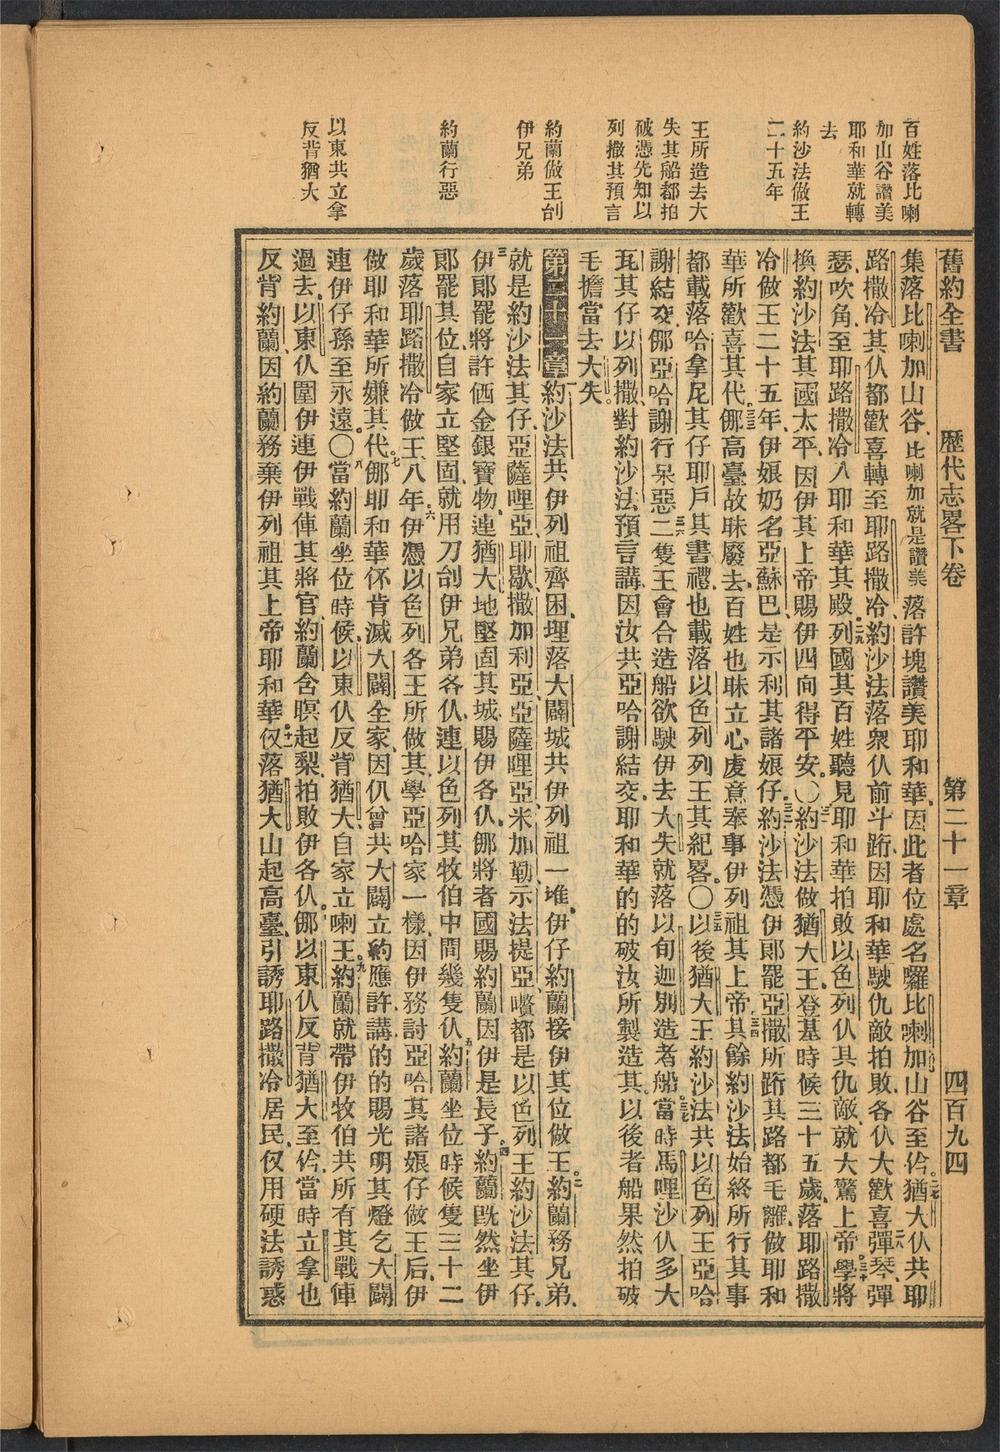 舊約全書　歷代志畧下卷　第二十一章　四百九四
百姓落比喇
加山谷讚美
耶和華就轉
去
約沙法做王
二十五年
王所造去大
失其船都拍
破憑先知以
列撒其預言
約蘭做王刣
伊兄弟
約蘭行惡
以東共立拿
反背猶大
集落比喇加山谷、比喇加就是讚美落許塊讚美耶和華、因此者位處名囉比喇加山谷至伱。二七猶大仈共耶
路撒冷其仈都歡喜轉至耶路撒冷、約沙法落衆仈前斗跻因耶和華駛仇敵拍敗、各仈大歡喜二八彈琴、彈
瑟、吹角、至耶路撒冷、入耶和華其殿。二九列國其百姓聽見耶和華拍敗以色列仈其仇敵、就大驚上帝。三十學將
換約沙法其國太平、因伊其上帝賜伊四向得平安。〇三一約沙法做猶大王、登基時候三十五歲落耶路撒
冷做王二十五年、伊娘奶名亞蘇巴、是示利其諸娘仔。三二約沙法憑伊郎罷亞撒所跻其路都毛離、做耶和
華所歡喜其代。三三儸高臺故昧廢去、百姓也昧立心處意奉事伊列祖其上帝。三四其餘約沙法始終所行其事
都載落哈拿尼其仔耶戶其書禮、也載落以色列列王其紀畧。〇三五以後猶大王約沙法共以色列王亞哈
謝結交、儸亞哈謝行呆惡、三六二隻王會合造船欲駛伊去大失、就落以旬迦別造者船。三七當時馬哩沙仈多大
瓦其仔以列撒、對約沙法預言講、因汝共亞哈謝結交、耶和華的的破汝所製造其、以後者船果然拍破
毛擔當去大失。
第二十一章　一約沙法共伊列祖齊困、埋落大闢城共伊列祖一堆、伊仔約蘭接伊其位做王。二約蘭務兄弟、
就是約沙法其仔、亞薩哩亞、耶歇、撒加利亞、亞薩哩亞、米加勒、示法提亞、嚽都是以色列王約沙法其仔、
三伊郎罷將許価金銀寶物、連猶大地堅固其城、賜伊各仈、儸將者國賜約蘭、因伊是長子。四約蘭旣然坐伊
郎罷其位、自家立堅固、就用刀刣伊兄弟各仈、連以色列其牧伯中間幾隻仈。五約蘭坐位時候隻三十二
歲、落耶路撒冷做王八年。六伊憑以色列各王所做其、學亞哈家一樣、因伊務討亞哈其諸娘仔做王后、伊
做耶和華所嫌其代。七儸耶和華伓肯滅大闢全家、因仍曾共大闢立約、應許講的的賜光明其燈乞大闢
連伊仔孫至永遠。〇八當約蘭坐位時候、以東仈反背猶大自家立喇王。九約蘭就帶伊牧伯共所有其戰俥
過去、以東仈圍伊連伊戰俥其將官、約蘭含暝起梨、拍敗伊各仈。十儸以東仈反背猶大至伱、當時立拿也
反背約蘭、因約蘭務棄伊列祖其上帝耶和華。十一仅落猶大山起高臺、引誘耶路撒冷居民、仅用硬法誘惑